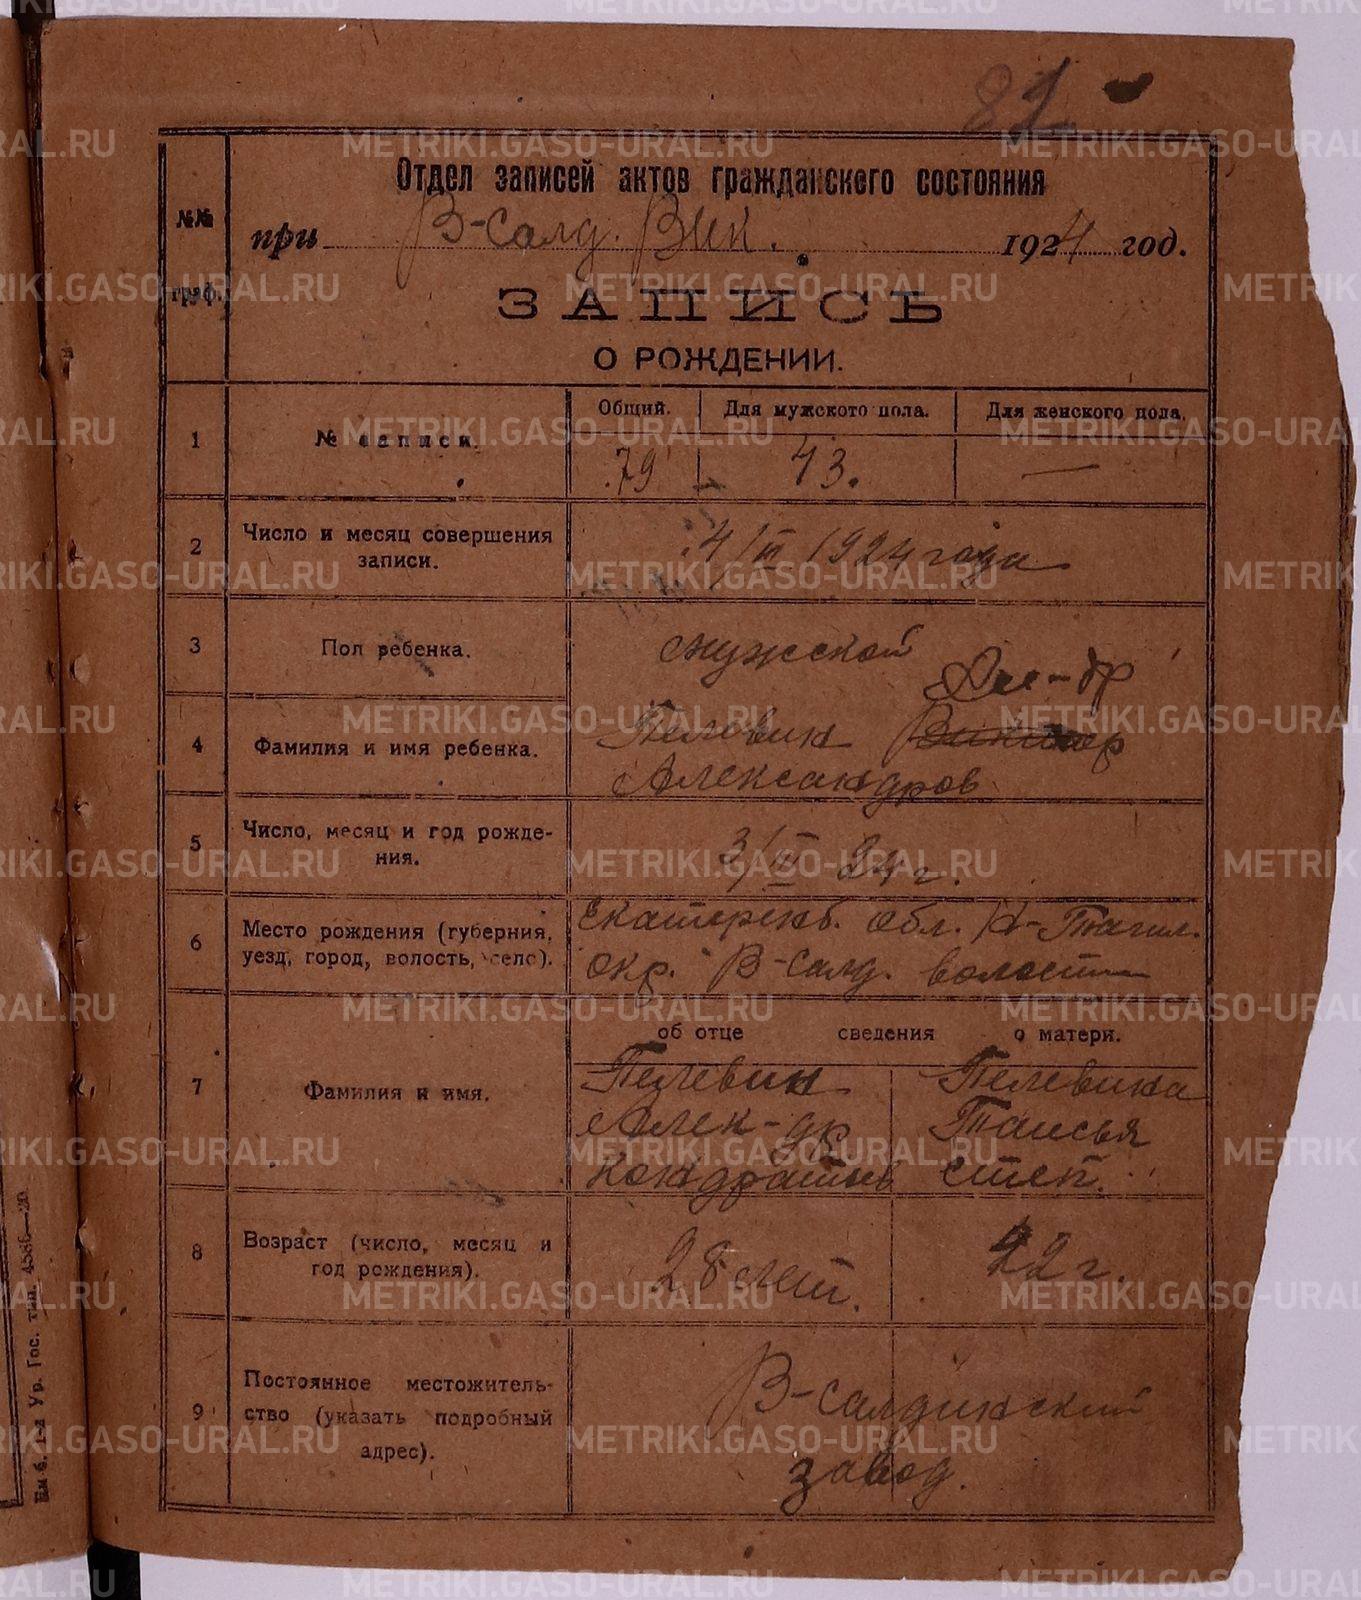 82
Отдел записей актов гражданского состояния
№№ граф.
при В-Салд. Вик. 1924 год.
ЗАПИСЬ
О РОЖДЕНИИ.
Общий. Для мужского пола. Для женского пола.
1 № записи. 79 43. —
2 Число и месяц совершения записи. 4/III 1924 года
3 Пол ребенка. мужской
Ал-др
4 Фамилия и имя ребенка. Пелевин Виктор
Александров
5 Число, месяц и год рождения. 3/III 24 г.
6 Место рождения (губерния, уезд, город, волость, село). Екатеринб. обл. Н-Тагил.
окр. В-Салд. волости
об отце сведения о матери.
7 Фамилия и имя. Пелевин Пелевина
Алек-др Таисья
Кондратьев Степ.
8 Возраст (число, месяц и год рождения). 28 лет. 22 г.
9 Постоянное местожительство (указать подробный адрес). В-Салдинский
завод.
Ур. Гос. тип. 4586—20
METRIKI.GASO-URAL.RU